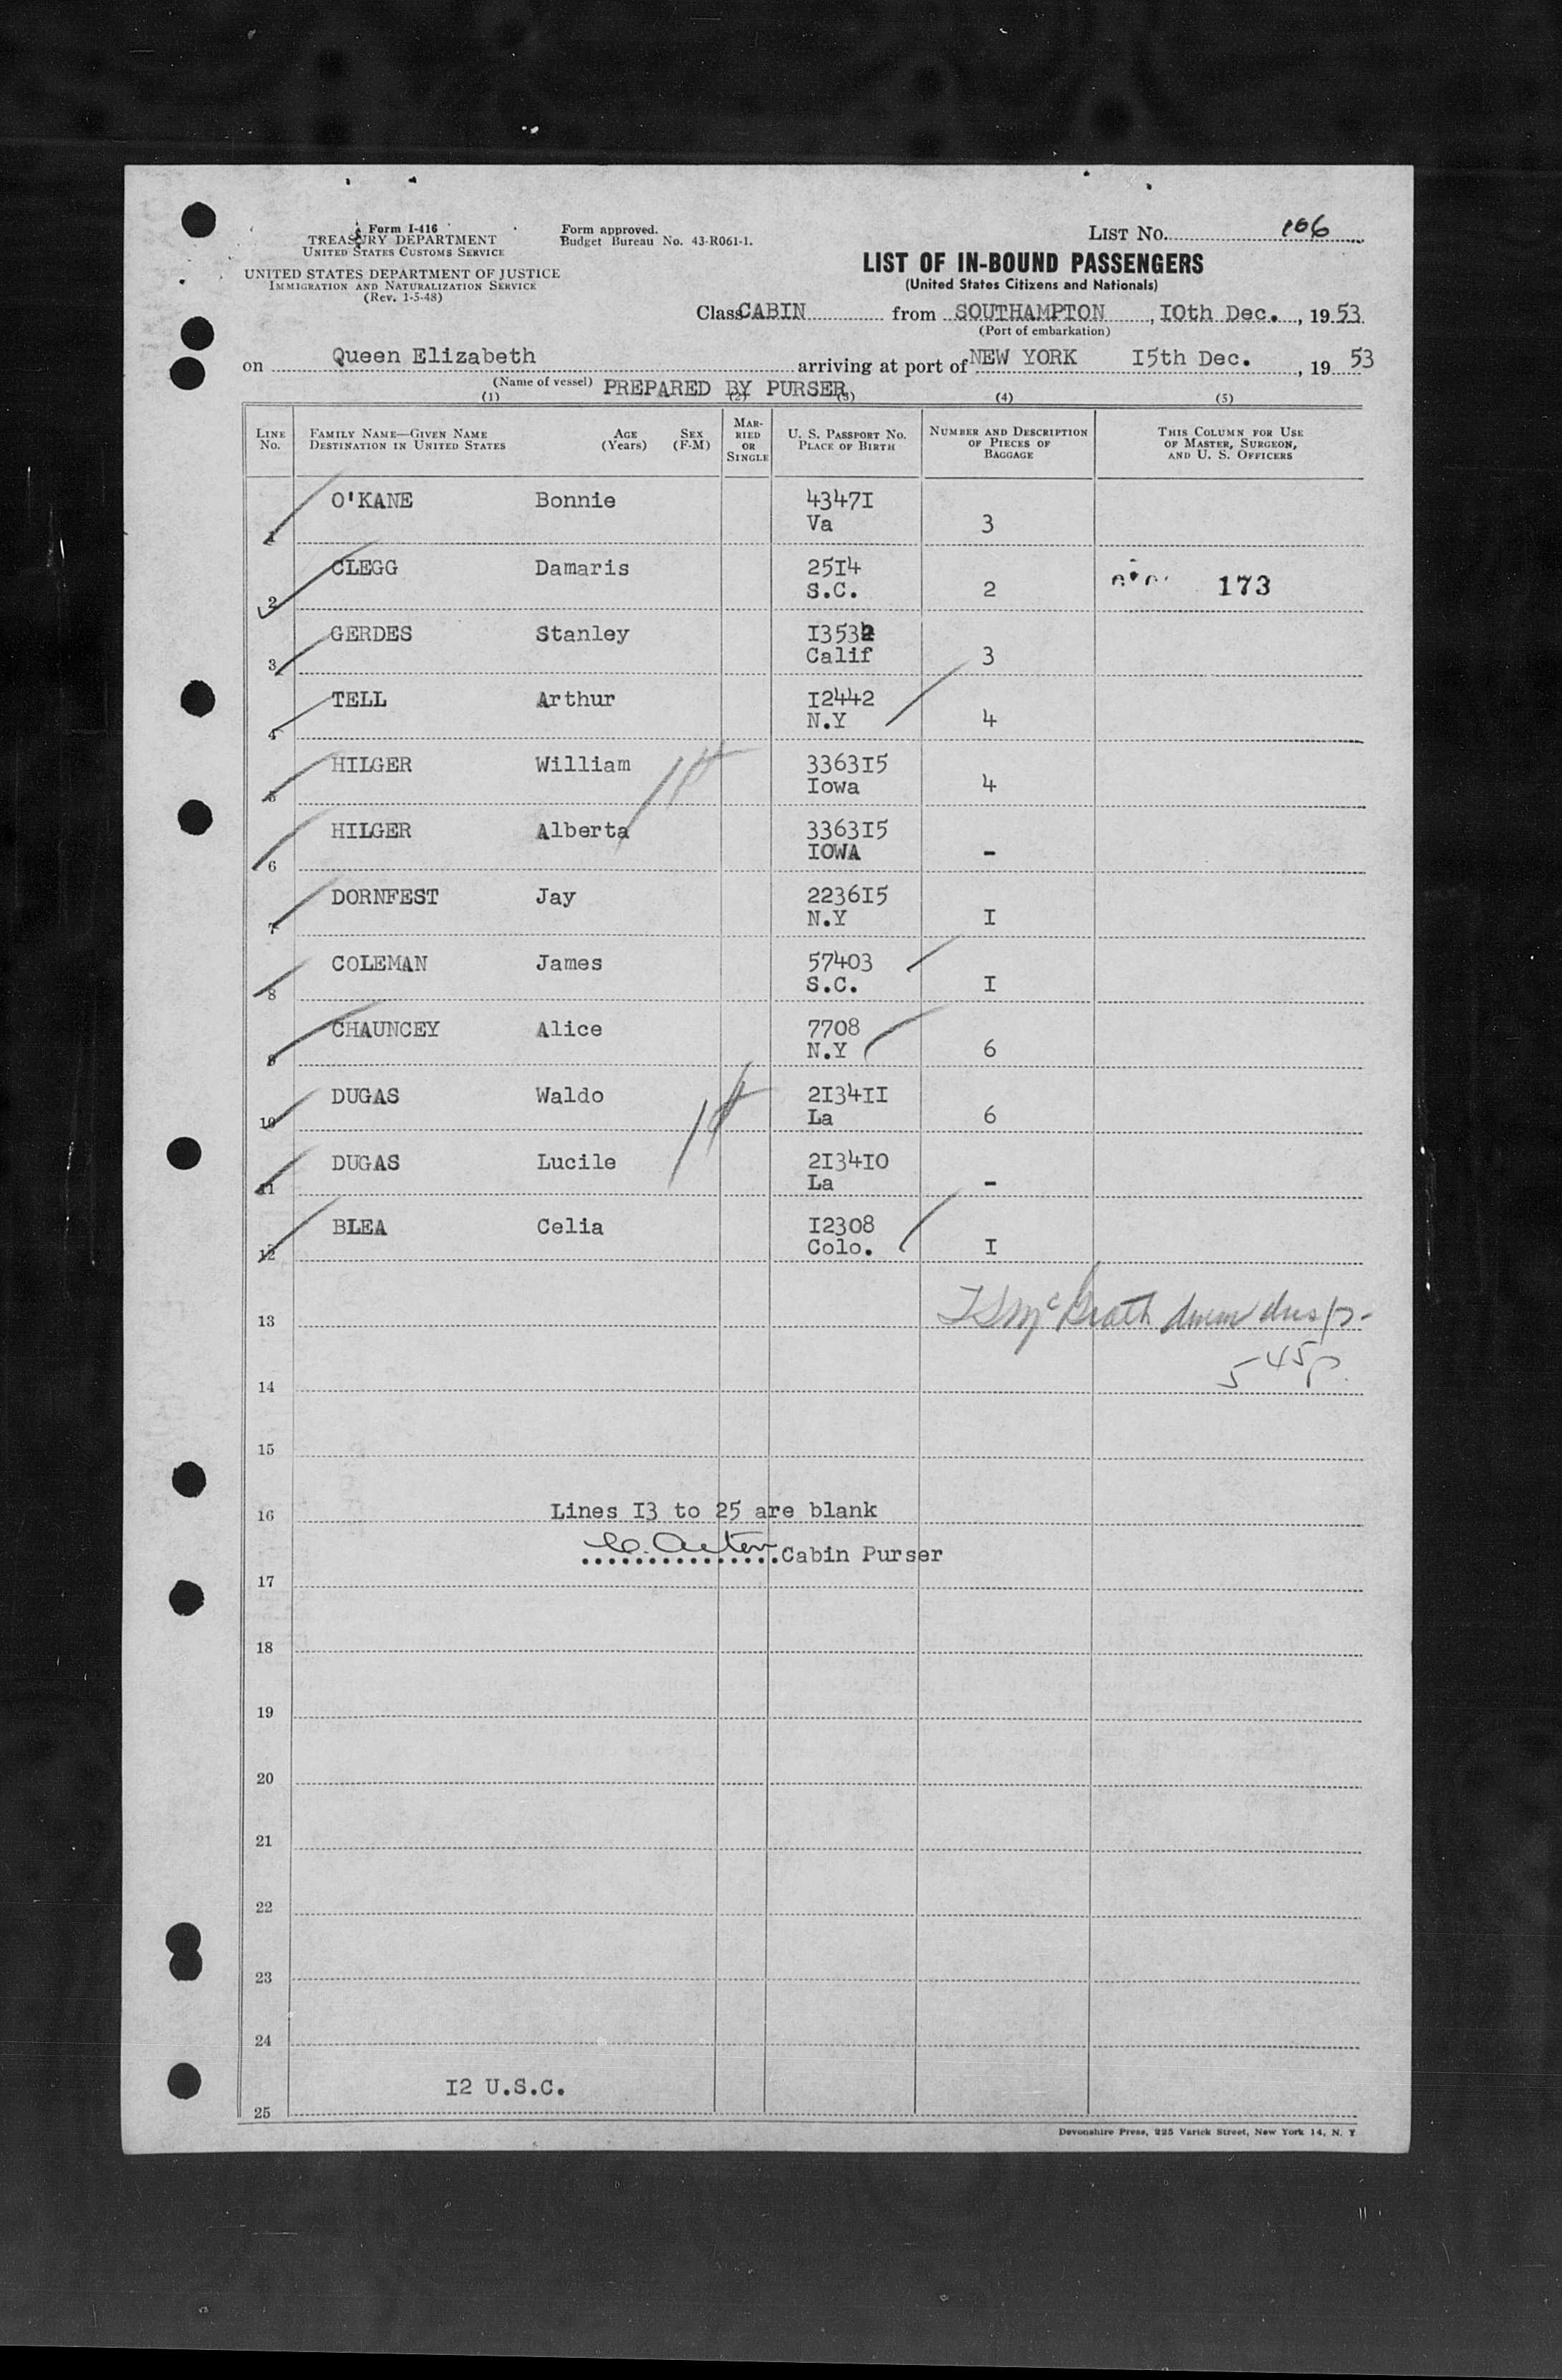 Form I-416
TREASURY DEPARTMENT
UNITED STATES CUSTOMS SERVICE
UNITED STATES DEPARTMENT OF JUSTICE
IMMIGRATION AND NATURALIZATION SERVICE
(Rev. 1-5-48)
Form approved.
Budget Bureau No. 43-R061-1.
LIST NO. 106
LIST OF IN-BOUND PASSENGERS
(United States Citizens and Nationals)
Class CABIN from SOUTHAMPTON, IOth Dec., 1953
(Port of embarkation)
on Queen Elizabeth arriving at port of NEW YORK I5th Dec., 1953
(Name of vessel) PREPARED BY PURSER
(1) (2) (3) (4) (5)
LINE NO.
FAMILY NAME—GIVEN NAME
DESTINATION IN UNITED STATES
AGE (Years)
SEX (F-M)
MARRIED OR SINGLE
U. S. PASSPORT NO.
PLACE OF BIRTH
NUMBER AND DESCRIPTION OF PIECES OF BAGGAGE
THIS COLUMN FOR USE OF MASTER, SURGEON, AND U. S. OFFICERS
1 O'KANE Bonnie 4347I
Va 3
2 CLEGG Damaris 25I4
S.C. 2 173
3 GERDES Stanley I3532
Calif 3
4 TELL Arthur I2442
N.Y 4
5 HILGER William 3363I5
Iowa 4
6 HILGER Alberta 3363I5
IOWA -
7 DORNFEST Jay 2236I5
N.Y I
8 COLEMAN James 57403
S.C. I
9 CHAUNCEY Alice 7708
N.Y 6
10 DUGAS Waldo 2I34II
La 6
11 DUGAS Lucile 2I34IO
La -
12 BLEA Celia I2308
Colo. I
13
McGrath
5 45 p
14
15
16 Lines I3 to 25 are blank
Cabin Purser
17
18
19
20
21
22
23
24
I2 U.S.C.
25
Devonshire Press, 225 Varick Street, New York 14, N. Y